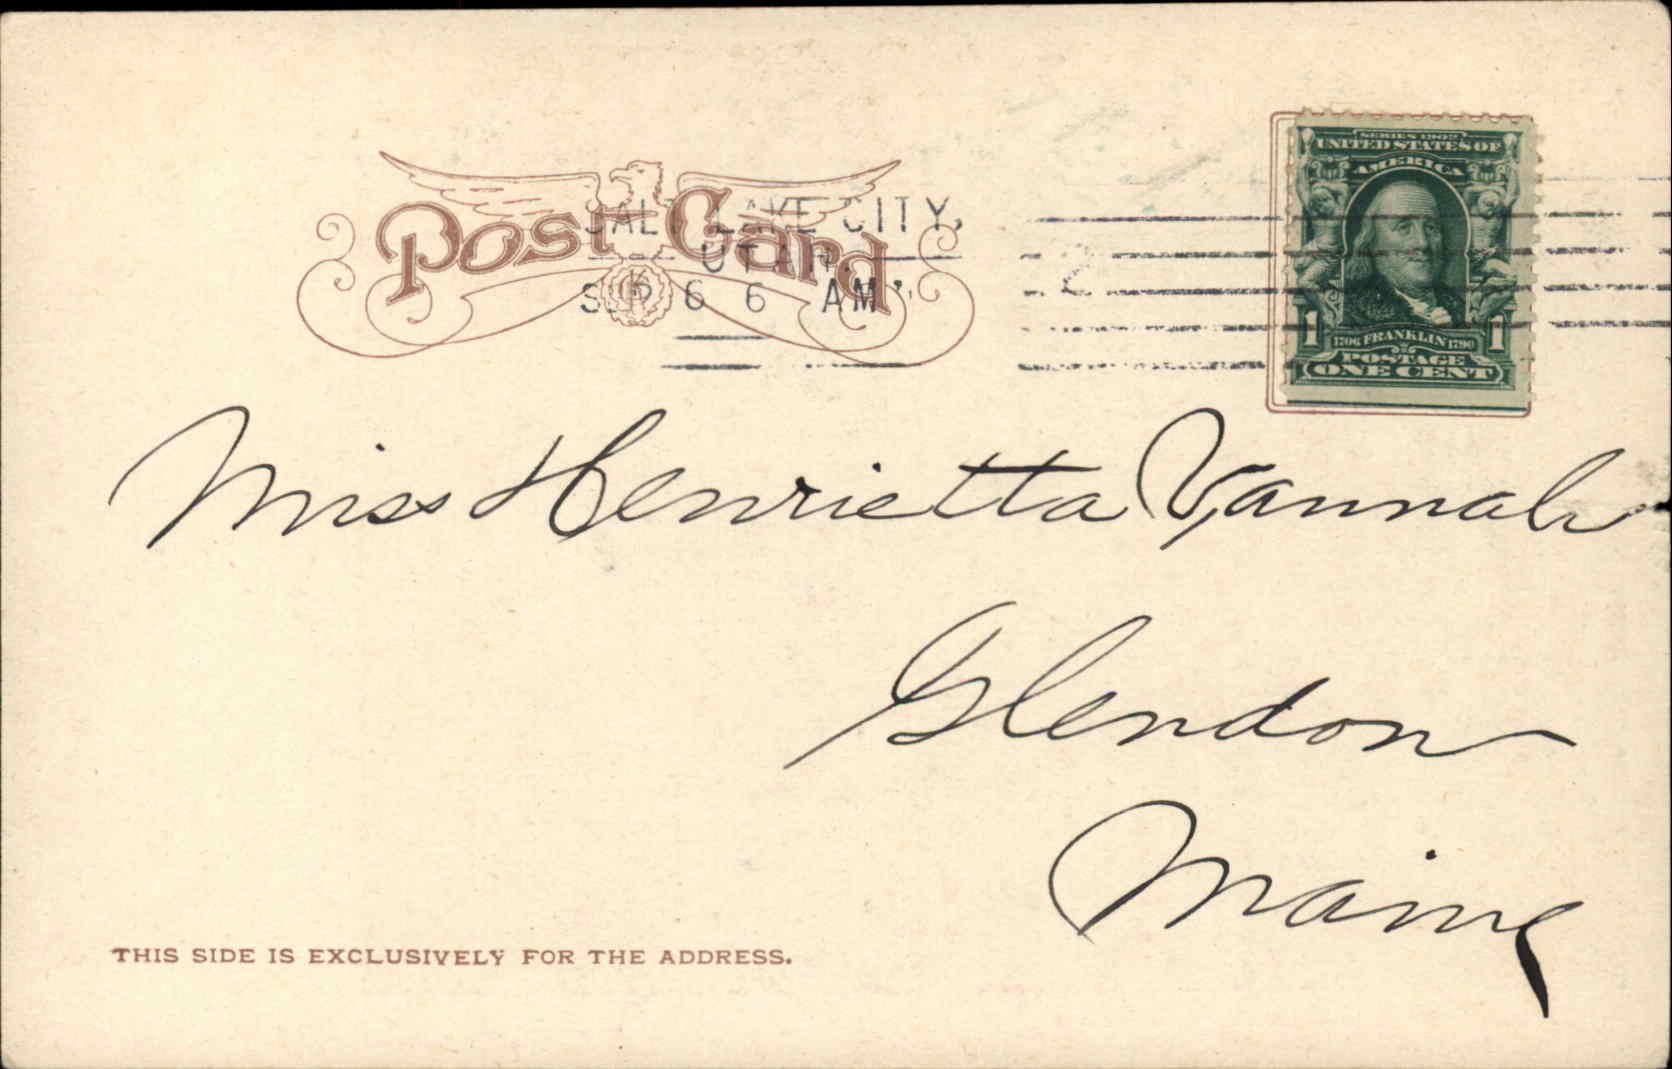 Post Card
SALT LAKE CITY,
UTAH.
6 6 AM
SERIES 1902
UNITED STATES OF
AMERICA
1 1
1706 FRANKLIN 1790
POSTAGE
ONE CENT
Miss Henrietta Vannah
Glendon
Maine
THIS SIDE IS EXCLUSIVELY FOR THE ADDRESS.